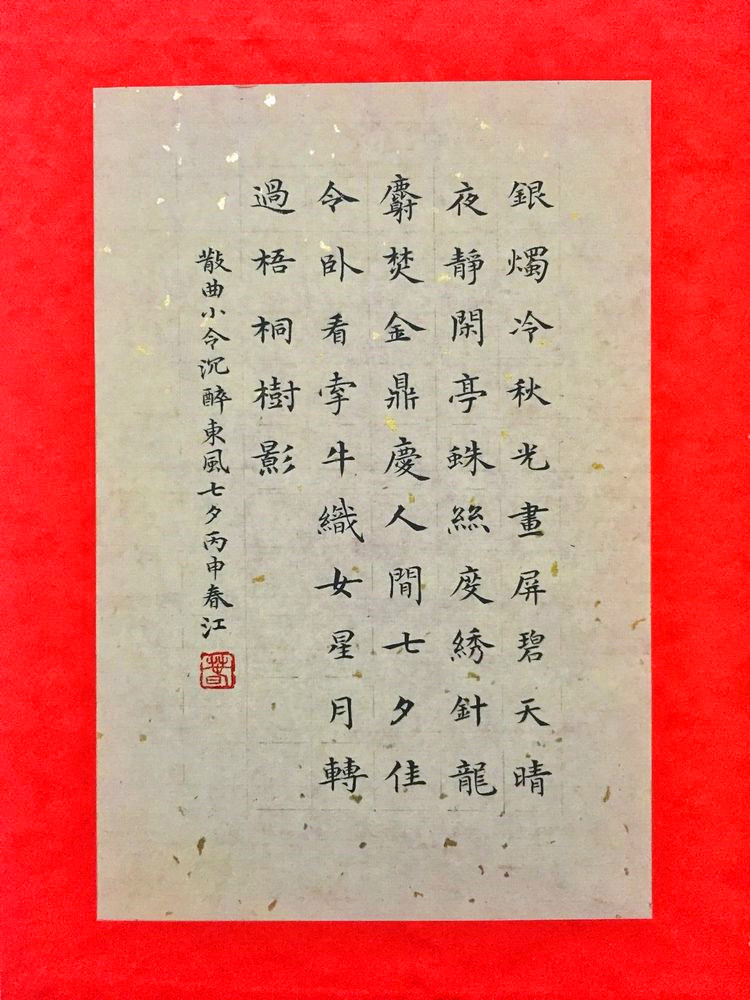 銀燭冷秋光畫屏碧天晴
夜靜閑亭蛛絲度綉針龍
麝焚金鼎慶人間七夕佳
令卧看牽牛織女星月轉
過梧桐樹影
散曲小令沉醉東風七夕丙申春江